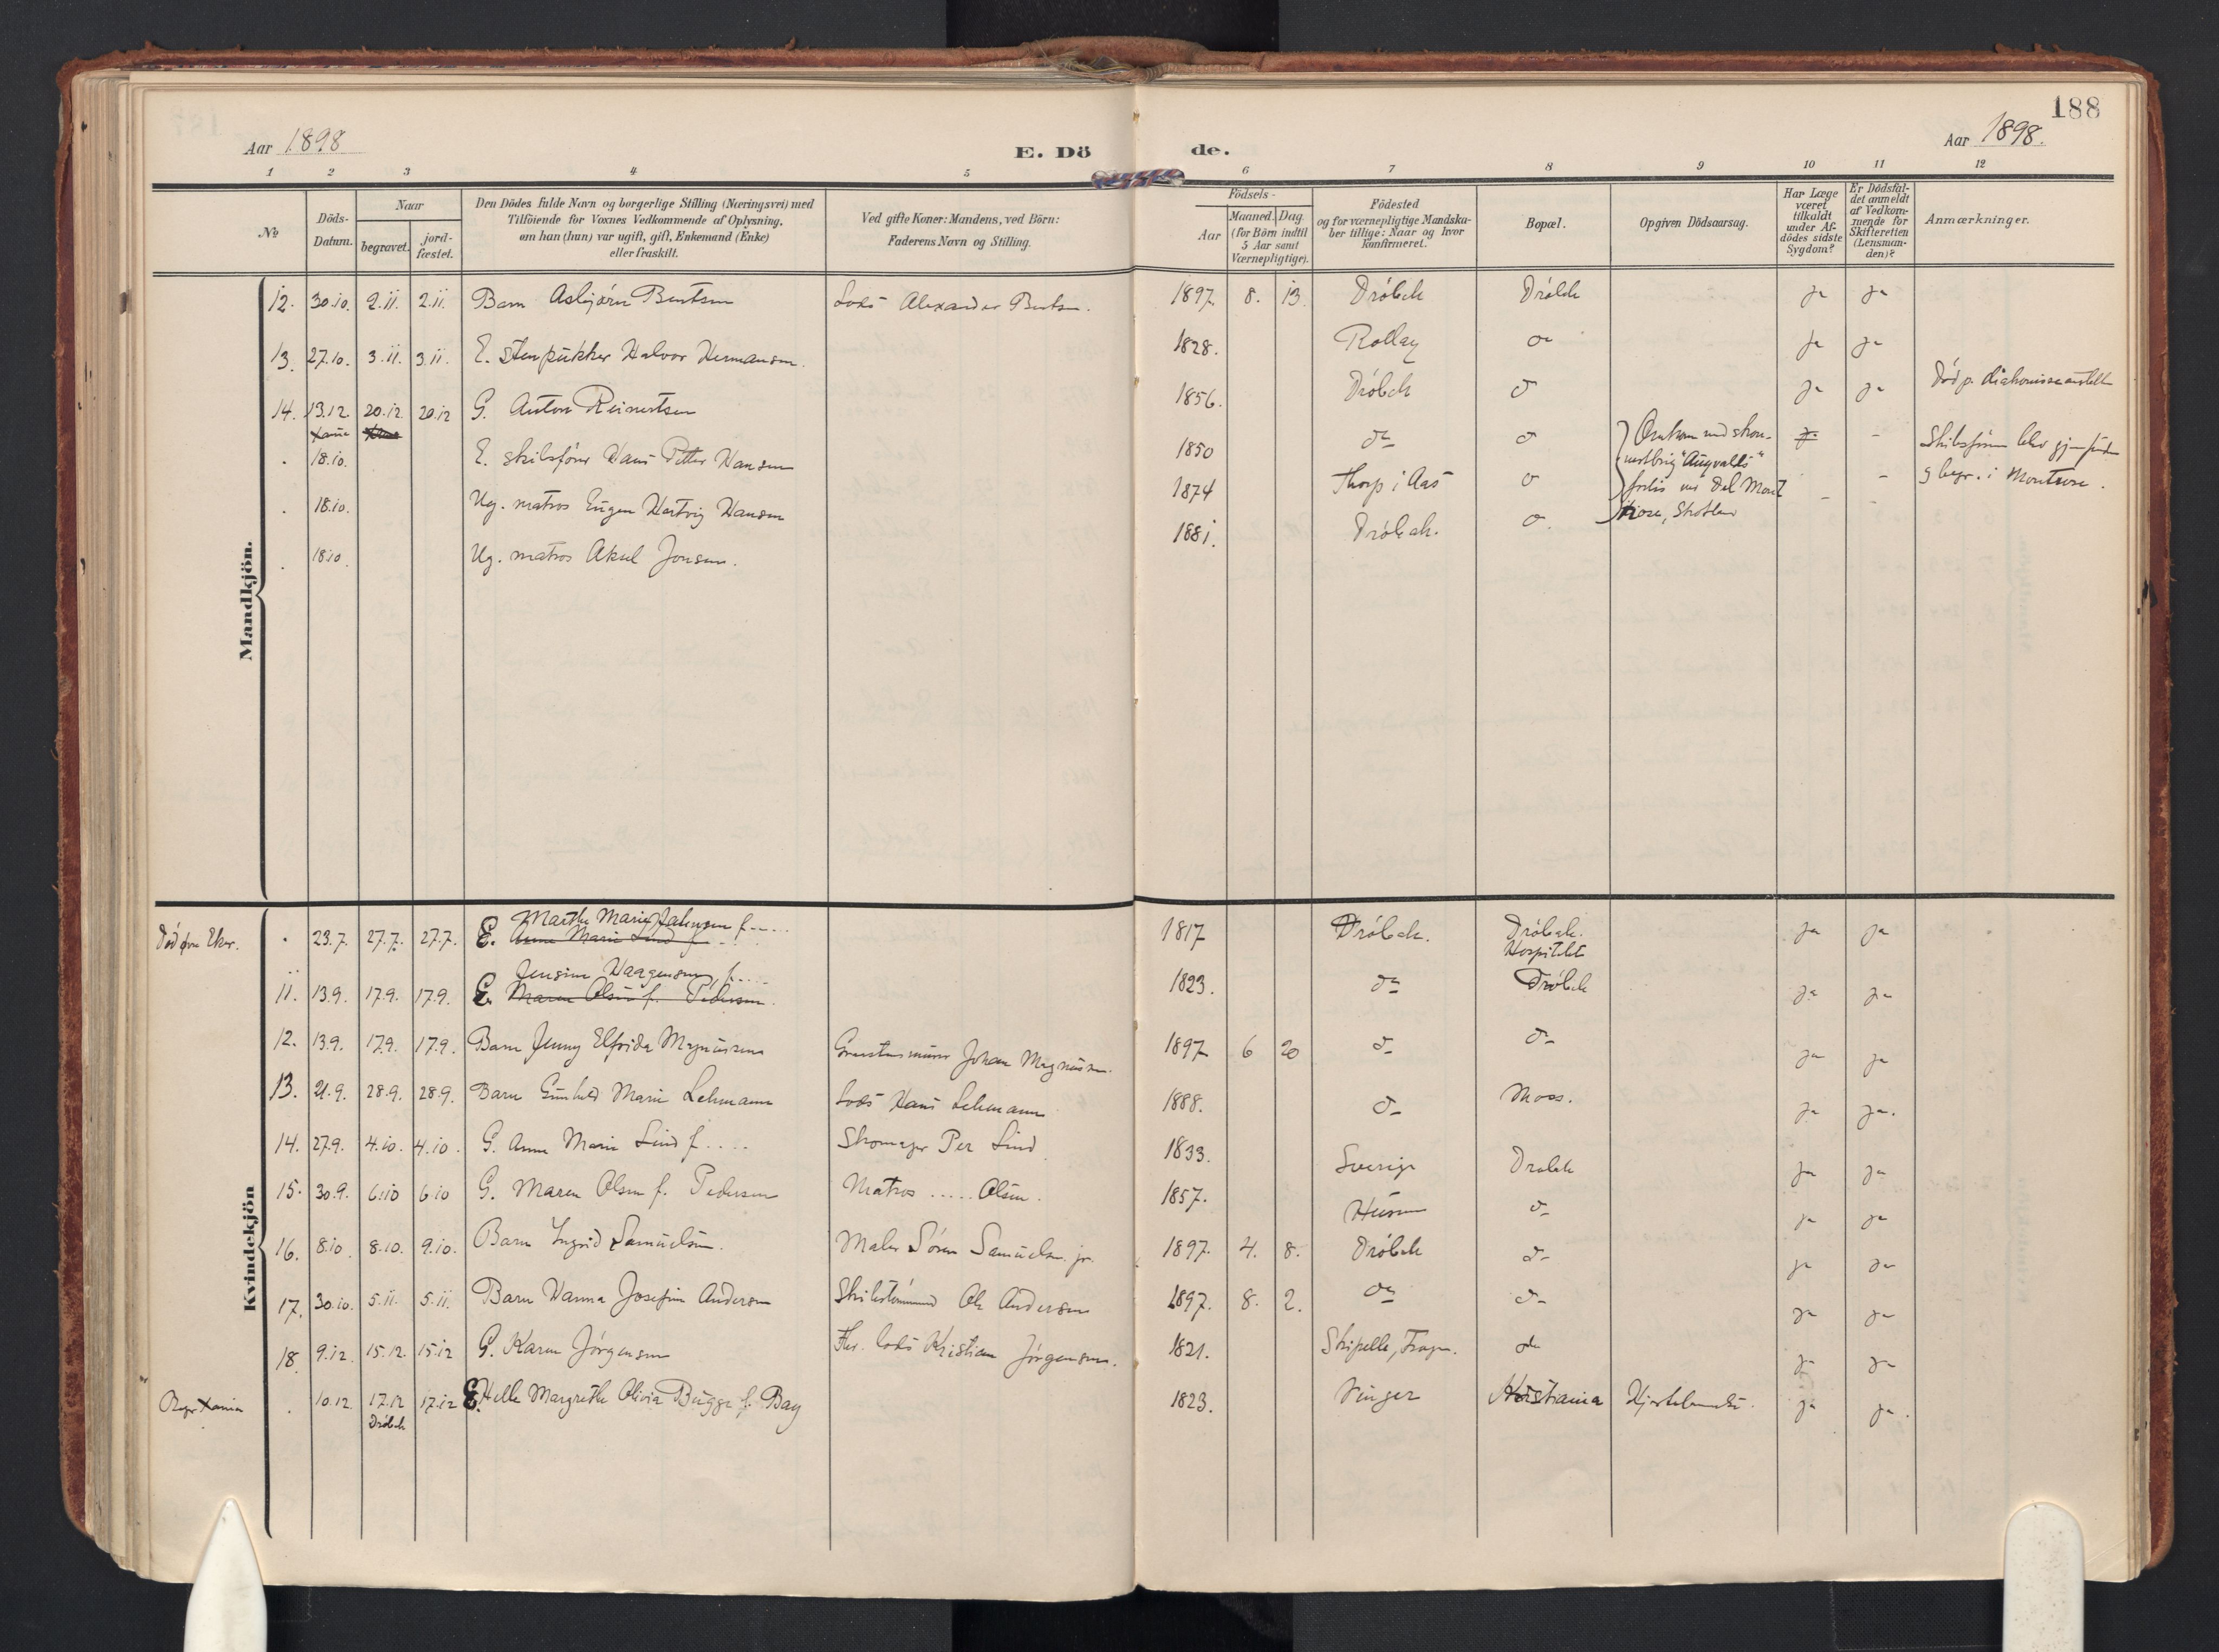 188
Aar 1898
Aar 1898.
E. Dö
de.
1 2 3 4 5 6 7 8 9 10 11 12
№
Döds-
Datum.
Naar
begravet.
jord-
fæstet.
Den Dödes fulde Navn og borgerlige Stilling (Næringsvei) med
Tilföiende for Voxnes Vedkommende af Oplysning,
om han (hun) var ugift, gift, Enkemand (Enke)
eller fraskilt.
Ved gifte Koner: Mandens, ved Börn:
Faderens Navn og Stilling.
Födsels-
Aar
Maaned. Dag.
(for Börn indtil
5 Aar samt
Værnepligtige).
Födested
og for værnepligtige Mandska-
ber tillige: Naar og hvor
konfirmeret.
Bopæl.
Opgiven Dödsaarsag.
Har Læge
været
tilkaldt
under Af-
dödes sidste
Sygdom?
Er Dödsfal-
det anmeldt
af Vedkom-
mende for
Skifteretten
(Lensman-
den)?
Anmærkninger.
Mandkjön.
12. 30.10. 2.11. 2.11. Barn Asbjörn Berntsen Lods Alexander Berntsen. 1897 8. 13. Dröbak Dröbak ja ja
13. 27.10. 3.11. 3.11. E. Stenpukker Halvor Hermansen. 1828. Rollag do ja ja
14. 13.12 20.12 20.12 G. Anton Reinertsen 1856. Dröbak do ja ja Död p. diakonisseanstalt
Xania
. 18.10. E. skibsförer Hans Petter Hansen 1850 do do Omkom med skon- - Skibsförer blev gjenfunden
nertbrig "Augvalds" og begr. i Montrose.
. 18.10. Ug. matros Eugen Hartvig Hansen 1874 Thorp i Aas do forlis ved Del Mont - -
rose, Skotland
. 18.10. Ug. matros Aksel Jonsen. 1881. Dröbak. do. - -
Kvindekjön
Marthe Marie f.....
Död . 23.7. 27.7. 27.7. E. Anne Marie Lind f.... 1817 Dröbak. Dröbak. ja ja
Hospitalet
Jensine Haagensen f.....
11. 13.9. 17.9. 17.9. E. Maren Olsen f. Pedersen. 1823. do Dröbak ja ja
12. 13.9. 17.9. 17.9. Barn Jenny Elfrida Magnussen Graastensmurer Johan Magnussen. 1897 6 20 do do ja ja
13. 21.9. 28.9. 28.9. Barn Gunhild Marie Lehmann Lods Hans Lehmann 1888. do Moss. ja ja.
14. 27.9. 4.10. 4.10. G. Anne Marie Lind f..... Skomager Per Lind 1833. Sverige Drøbak ja ja
15. 30.9. 6.10 6.10 G. Maren Olsen f. Pedersen Matros ..... Olsen. 1857. Hurum do ja ja
16. 8.10. 8.10. 9.10. Barn Ingrid Samuelsen. Maler Sören Samuelsen jr. 1897. 4. 8. Dröbak do ja ja
17. 30.10. 5.11. 5.11. Barn Hanna Josefine Andersen Skibstömmermand Ole Andersen 1897. 8. 2. do do ja ja
18. 9.12. 15.12. 15.12 G. Karen Jörgensen Fhv. lods Kristian Jörgensen. 1821. Skipelle, Frogn. do ja ja
Begr. Xania . 10.12. 17.12 17.12 E. Helle Margrethe Olivia Bugge f. Bay 1823. Vinger Kristiania ja ja.
Dröbak